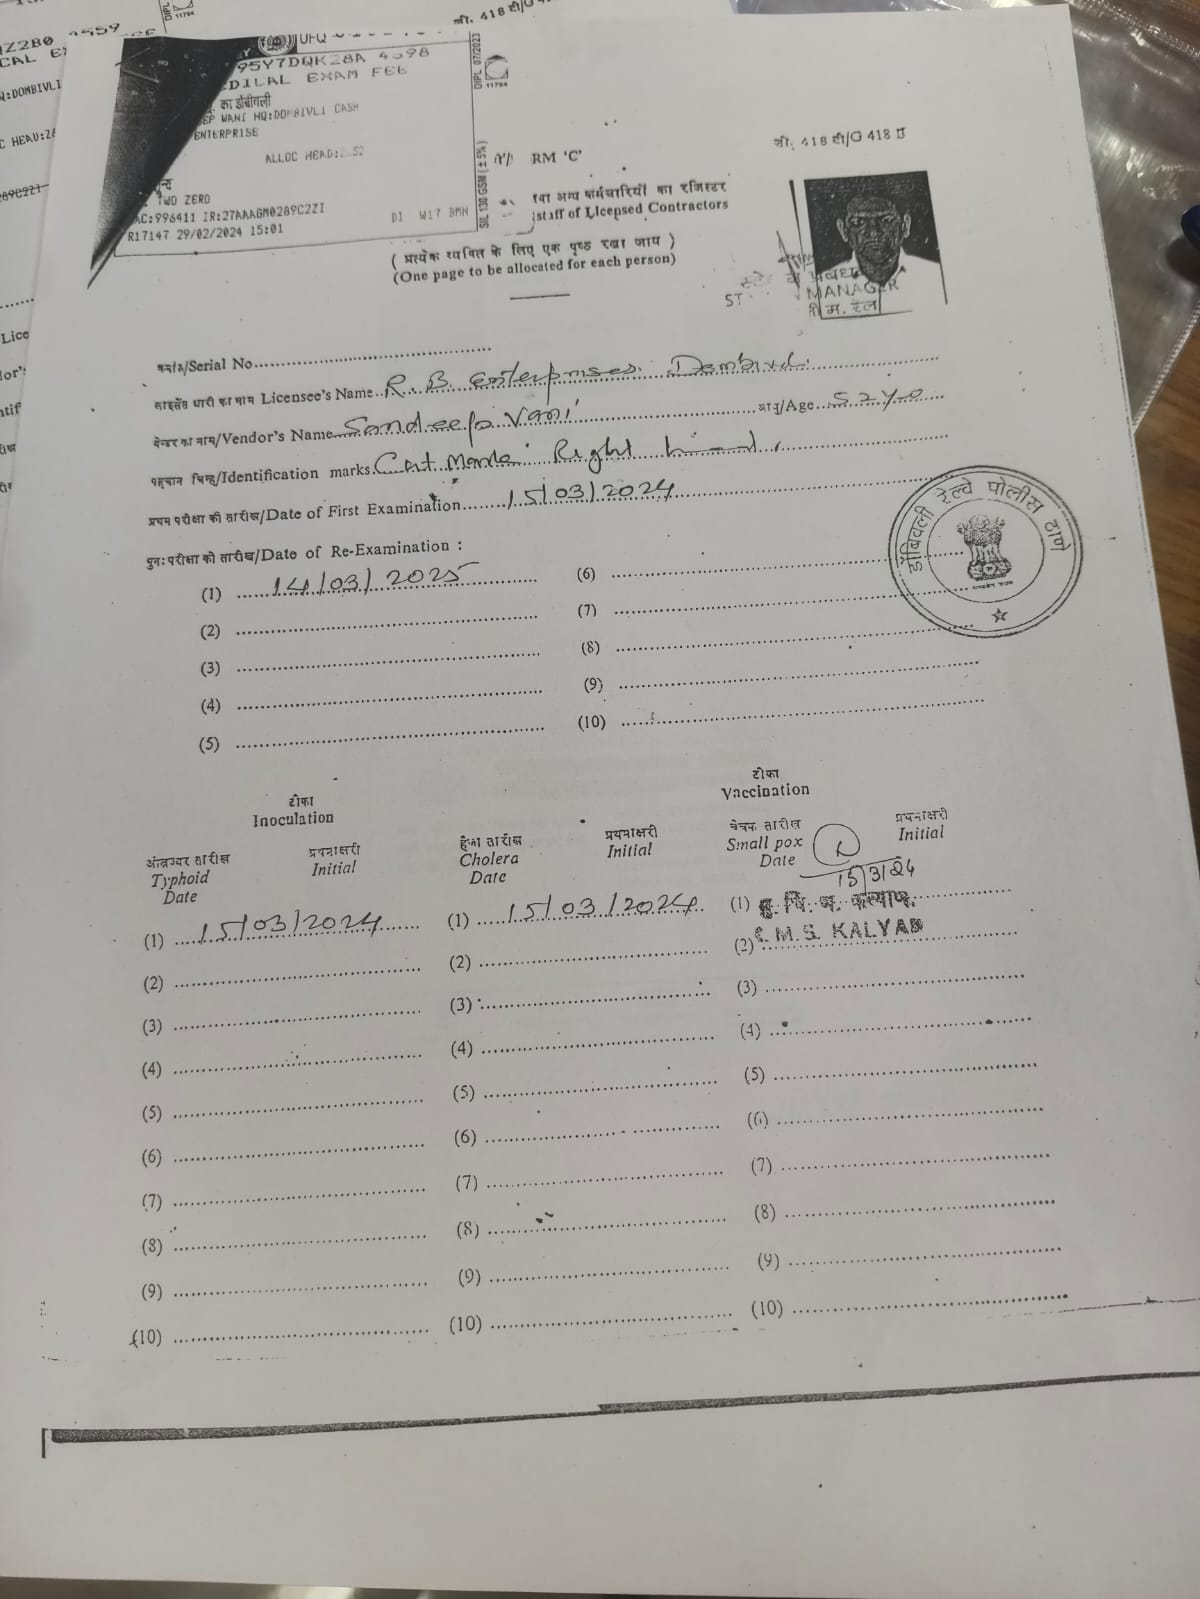 सी. 418 टी/G
11794
4559
Z2B0
CAL
Q:DOMBIVLI
C HEAD:
Lice
UFQ
95Y7DQK28A 4398
EXAM FEE
का डोंबीवली
WANI HQ:DOMBIVLI CASH
ENTERPRISE
ALLOC HEAD:
TWO ZERO
AC:996411 IR:27AAAGM0289C2ZI
DI W17 BMN
R17147 29/02/2024 15:01
SIL 130 GSM (±5%) DIPL 07/2023
11794
सी. 418 टी/G 418
RM 'C'
अन्य कर्मचारियों का रजिस्टर
staff of Licensed Contractors
( प्रत्येक व्यक्ति के लिए एक पृष्ठ रखा जाय )
(One page to be allocated for each person)
ST
MANAGER
म. रेल
क्रमांक/Serial No.
लाइसेंस धारी का नाम Licensee's Name R. B. Enterprises. Dombivli.
वेन्डर का नाम/Vendor's Name Sandeep Vani आयु/Age 52 Yo
पहचान चिन्ह/Identification marks Cut Mark Right hand
प्रथम परीक्षा की तारीख/Date of First Examination 15/03/2024
पुनः परीक्षा की तारीख/Date of Re-Examination :
(1) 14/03/2025
(2)
(3)
(4)
(5)
(6)
(7)
(8)
(9)
(10)
डोंबिवली रेल्वे पोलीस ठाणे
टीका
Inoculation
टीका
Vaccination
आंत्रज्वर तारीख
Typhoid
Date
प्रथमाक्षरी
Initial
हैजा तारीख
Cholera
Date
प्रथमाक्षरी
Initial
चेचक तारीख
Small pox
Date
प्रथमाक्षरी
Initial
15/3/24
(1) 15/03/2024
(2)
(3)
(4)
(5)
(6)
(7)
(8)
(9)
(10)
(1) 15/03/2024
(2)
(3)
(4)
(5)
(6)
(7)
(8)
(9)
(10)
(1) कल्याण
(2) C.M.S. KALYAN
(3)
(4)
(5)
(6)
(7)
(8)
(9)
(10)